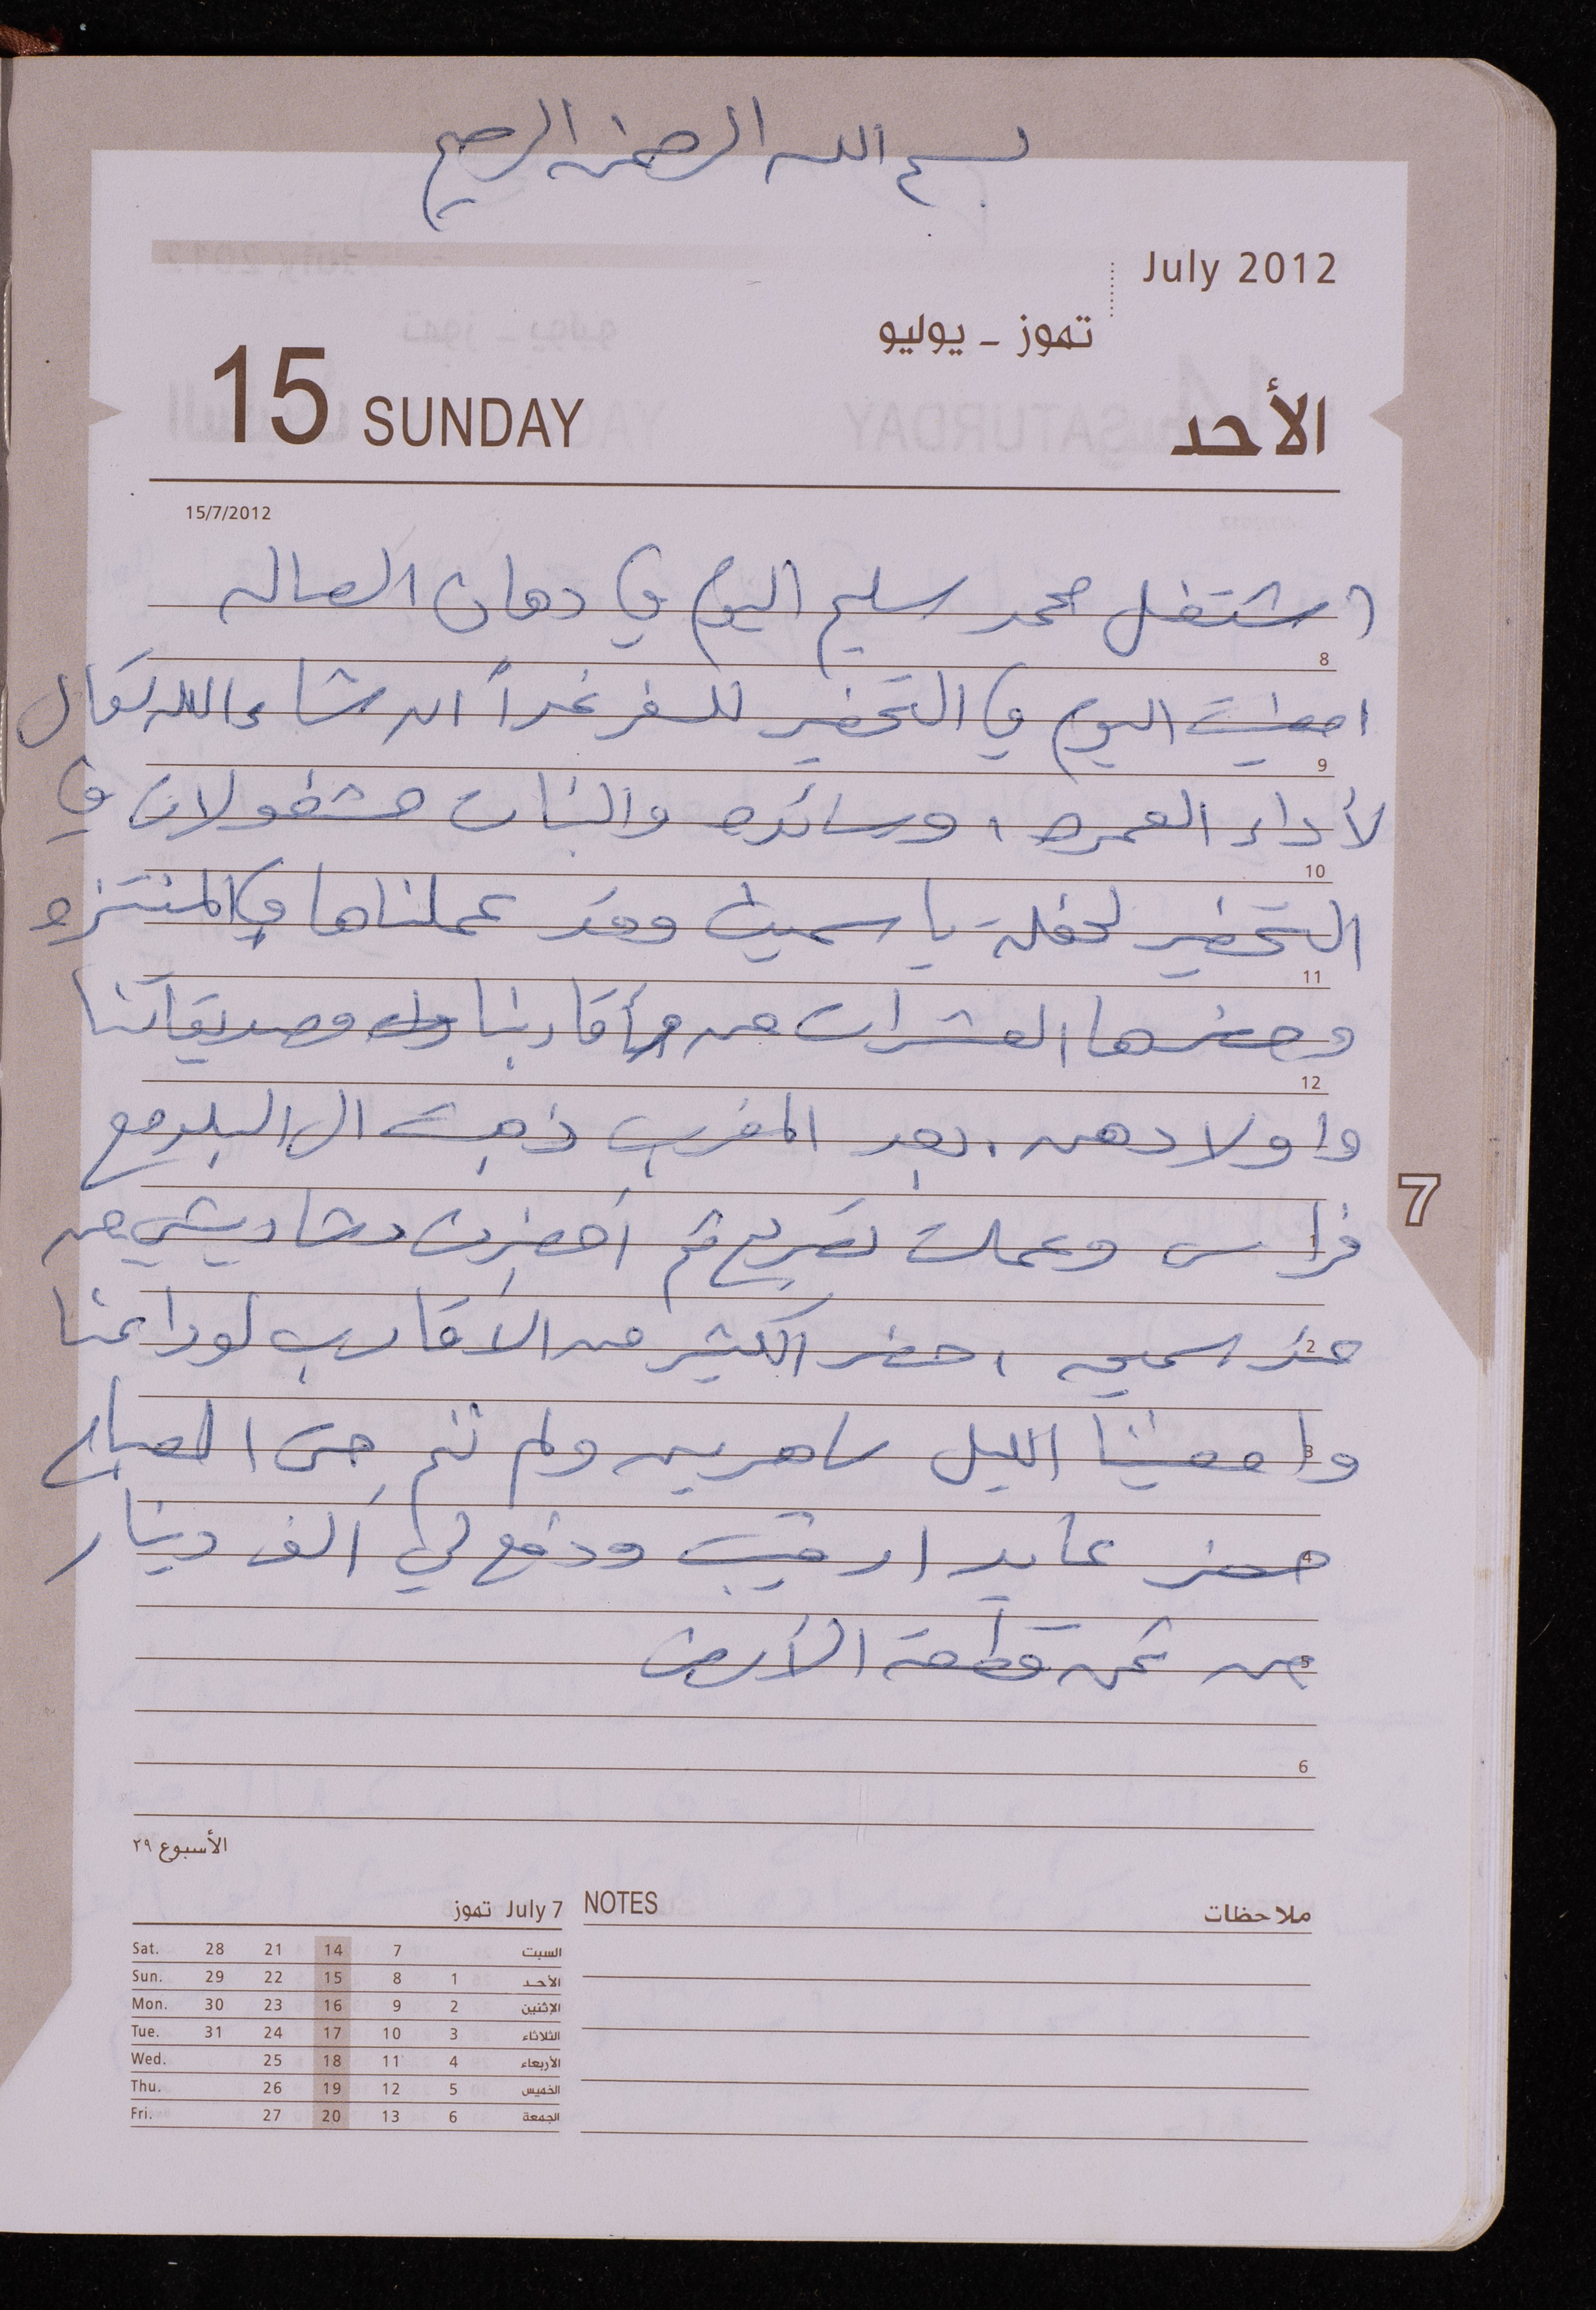 بسم الله الرحمن الرحيم
July 2012
تموز - يوليو
15 SUNDAY الأحد
15/7/2012
اشتغل محمد سليم اليوم في دهان الصاله
8
امضيت اليوم في التحضير للسفر غداً ان شاء الله تعالى
9
لأداء العمره ، وسائده والبنات مشغولات في
10
التحضير لحفلة ياسمين وقد عملناها في المنتزه
11
وحضرها العشرات من أقاربنا وصديقاتنا
12
واولادهن . بعد المغرب ذهبت الى البلد مع
7
فراس وعملت تصريح ثم أحضرت دشاديشي من
1
عند سميح ، حضر الكثير من الاقارب لوداعنا
2
وامضينا الليل ساهرين ولم ننم حتى الصباح
3
حضر عايد ودفع لي ألف دينار
4
من ثمن قطعة الأرض
5
6
الأسبوع ٢٩
July 7 تموز
NOTES ملاحظات
Sat. 28 21 14 7 السبت
Sun. 29 22 15 8 1 الأحد
Mon. 30 23 16 9 2 الإثنين
Tue. 31 24 17 10 3 الثلاثاء
Wed. 25 18 11 4 الأربعاء
Thu. 26 19 12 5 الخميس
Fri. 27 20 13 6 الجمعة